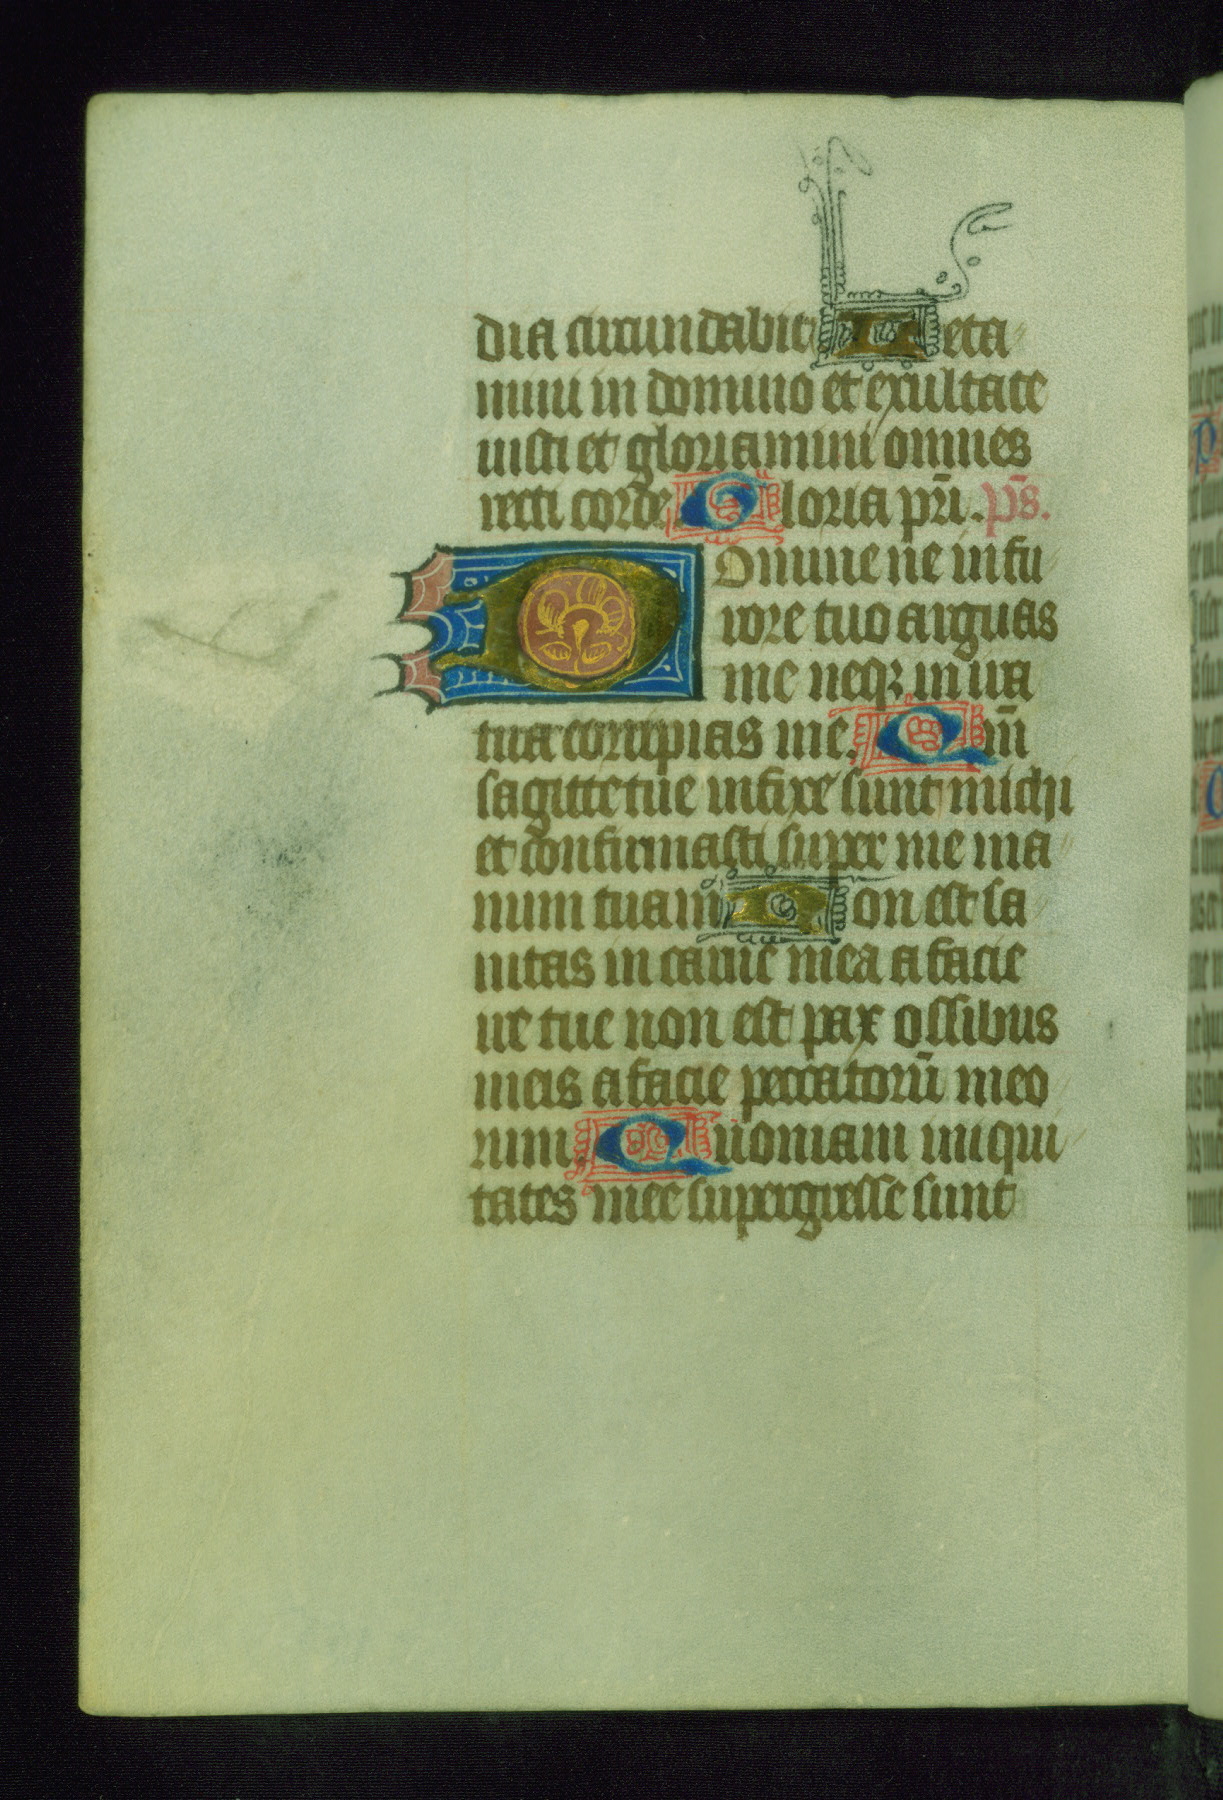 dia circundabit Leta
mini in domino et exultate
iusti et gloriamini omnes
recti corde Gloria pr̄i. p̄s.
Domine ne in fu
rore tuo arguas
me neqꝫ in ira
tua corripias me. Qm̄
sagitte tue infixe sunt michi
et confirmasti super me ma
num tuam Non est sa
nitas in carne mea a facie
ire tue non est pax ossibus
meis a facie peccatorū meo
rum. Quoniam iniqui
tates mee supergresse sunt